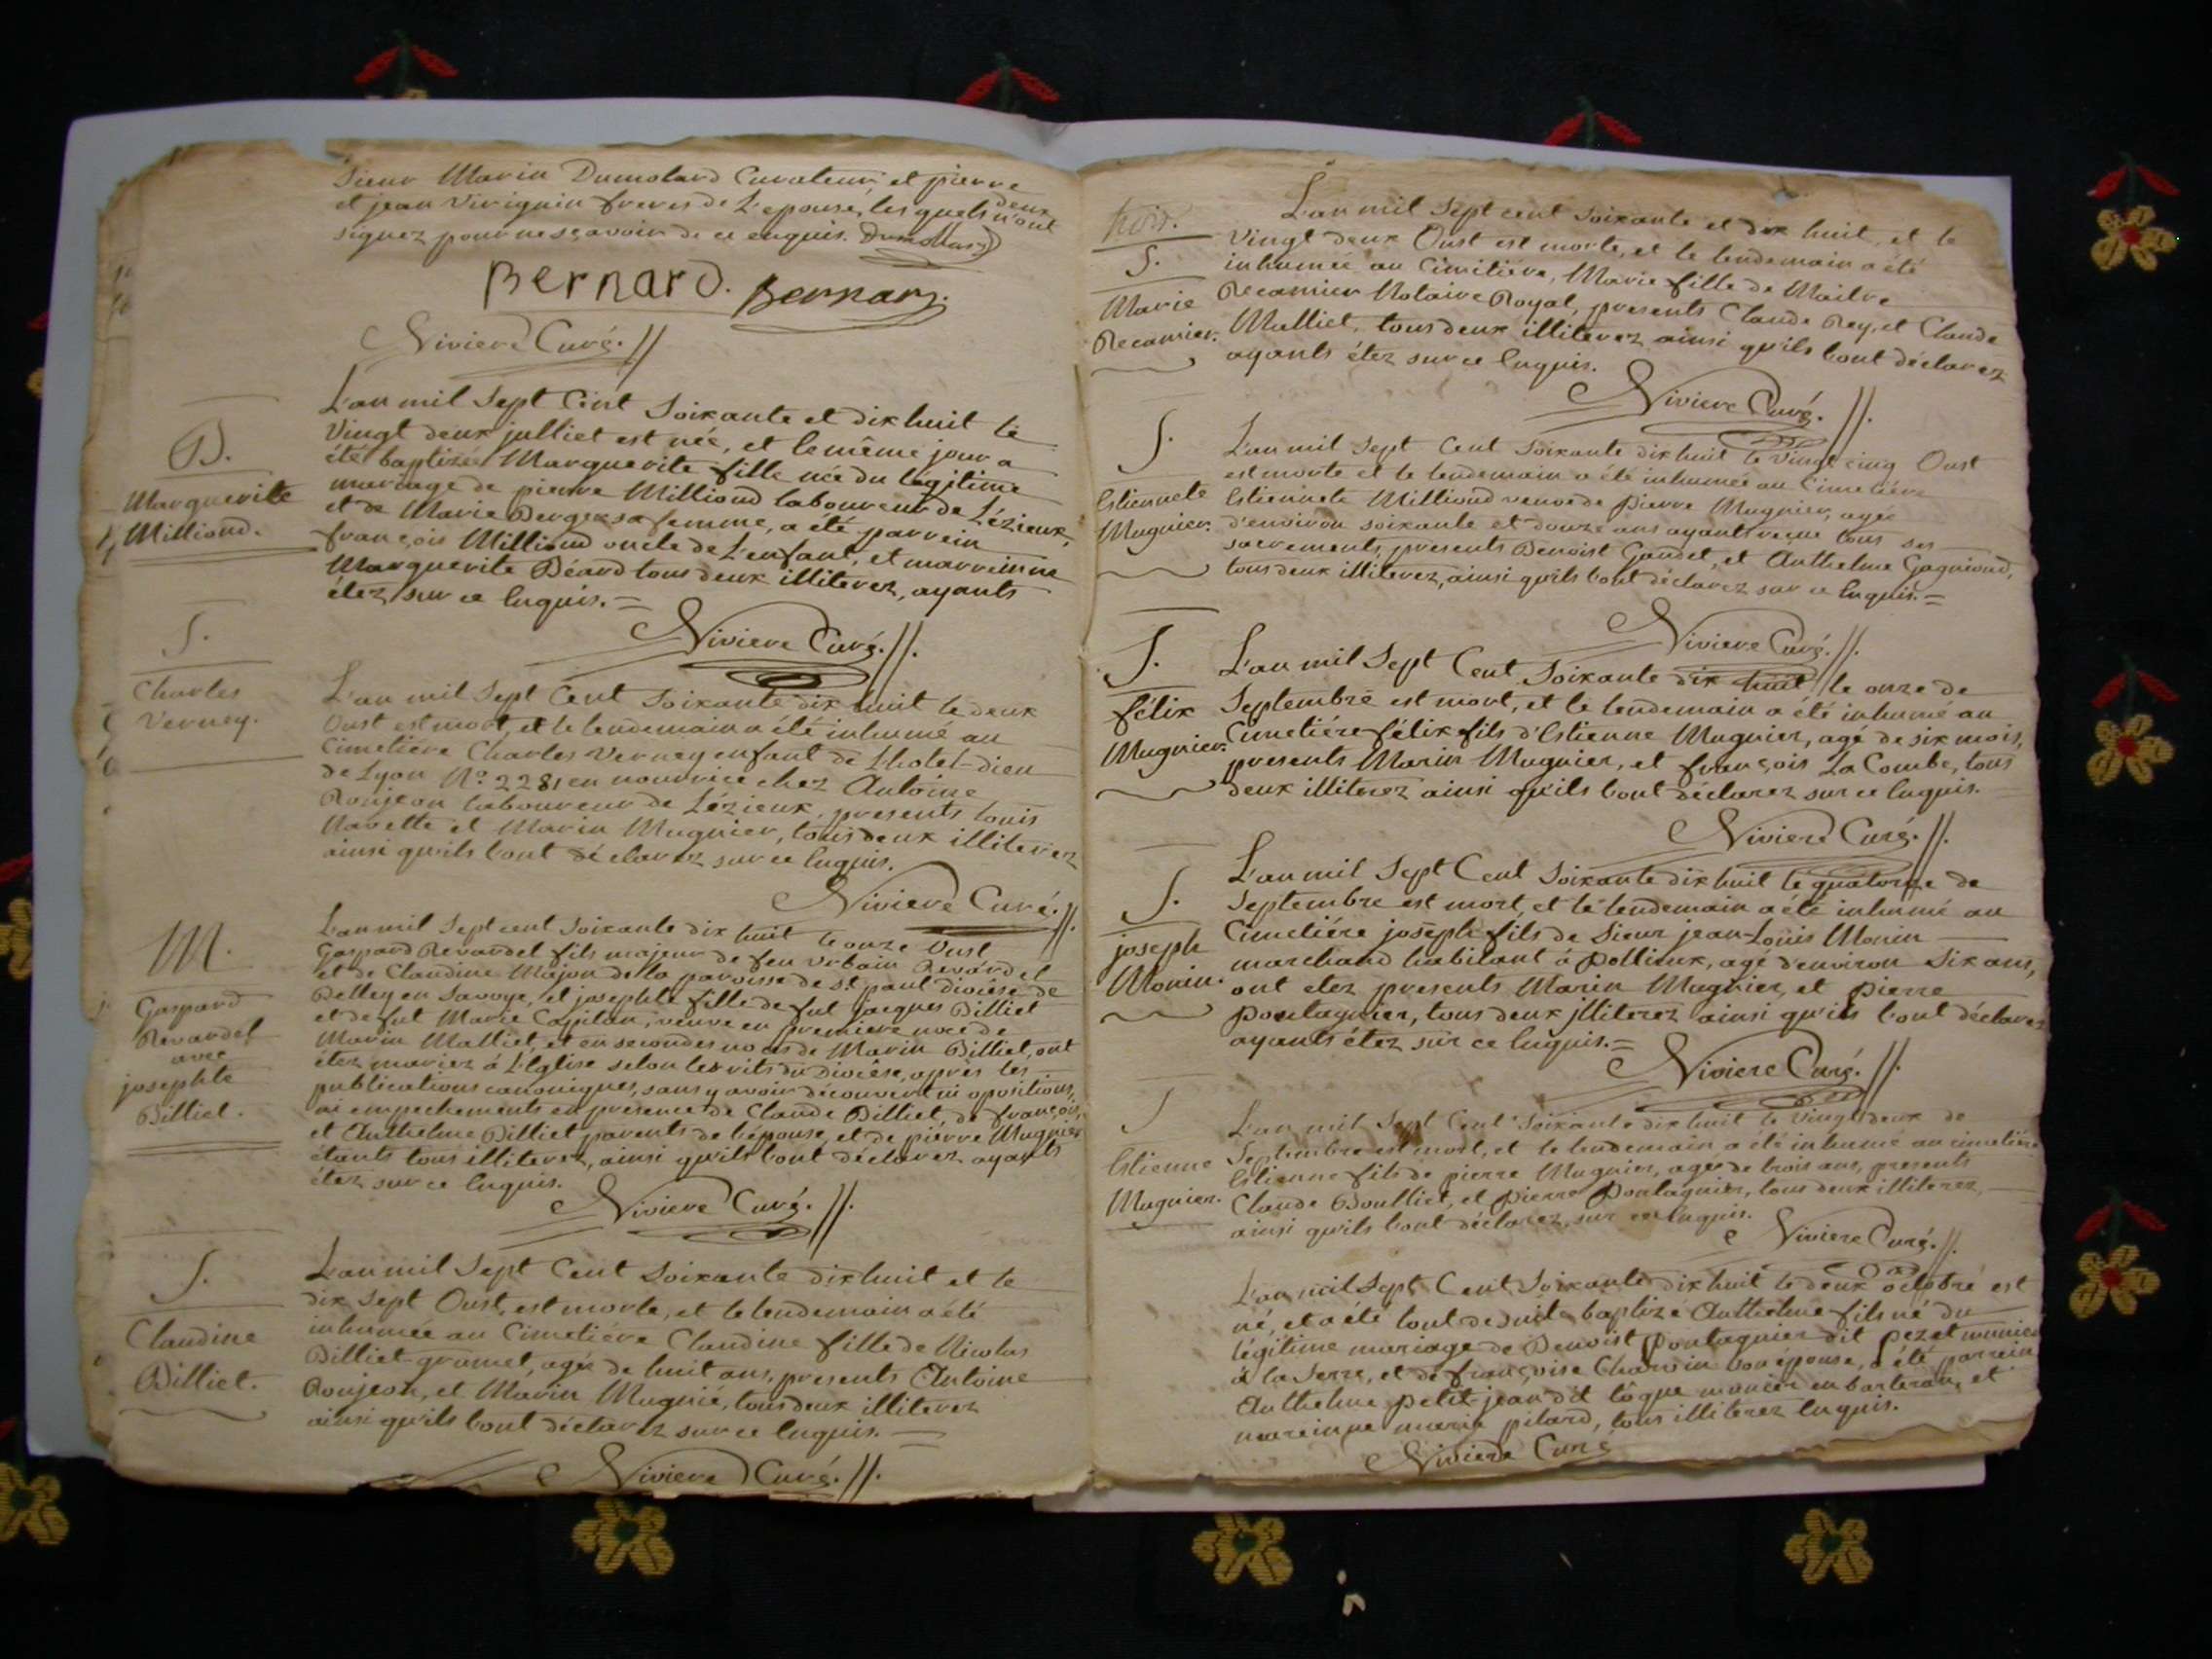 Sieur Marin Dumolard Curateur, et pierre
et jean Virignin freres de L'epouse, les quels deux n'ont
signez pour ne sçavoir de ce enquis. Dumollard
Bernard. Bernard.
Riviere Curé. //
B.
Marguerite
Milliand.
L'an mil Sept Cent Soixante et dix huit le
Vingt deux julliet est née, et le même jour a
été baptizée Marguerite fille née du légitime
mariage de pierre Milliand laboureur de Lézieux,
et de Marie Berger sa femme, a été parrein
françois Milliand oncle de L'enfant, et marreinne
Marguerite Béard tous deux illiterez, ayants
étez sur ce Enquis. =
Riviere Curé. //.
S.
Charles
Verney.
L'an mil Sept Cent Soixante dix huit le deux
Oust est mort, et le lendemain a été inhumé au
Cimetiére Charles Verney enfant de Lhotel-dieu
de Lyon No. 2281 en nourrice chez Antoine
Roujeon laboureur de Lézieux, presents Louis
Navette et Marin Mugnier, tous deux illiterez
ainsi qu'ils l'ont déclarez sur ce Enquis.
Riviere Curé. //.
M.
Gaspard
Revardel
avec
josephte
Billiet.
L'an mil Sept cent Soixante dix huit le onze Oust
Gaspard Revardel fils majeur de feu Urbain Revardel
et de Claudine Majon de la paroisse de st. paul diocése de
Belley en Savoye, et josephte fille de fut jacques Billiet
et de fut Marie Capitan, veuve en premiere noce de
Marin Malliet, et en secondes noces de Marin Billiet, ont
étez mariez à L'Eglise selon les rits du Diocése, aprés les
publications canoniques, sans y avoir découvert ni opositions,
ni empechements en presence de Claude Billiet, de françois,
et Anthelme Billiet parents de l'épouse, et de piérre Mugnier
étants tous illiterez, ainsi qu'ils l'ont déclarez ayants
étez sur ce Enquis.
Riviere Curé. //.
S.
Claudine
Billiet.
L'an mil Sept Cent Soixante dix huit et le
dix Sept Oust, est morte, et le lendemain a été
inhumée au Cimetiére Claudine fille de Nicolas
Billiet-gramet, agée de huit ans, presents Antoine
Roujeon, et Marin Mugnié, tous deux illiterez
ainsi qu'ils l'ont déclarez sur ce Enquis. =
Riviere Curé. //.
trois.
S.
Marie
Recamier.
L'an mil Sept cent Soixante et dix huit, et le
Vingt deux Oust est morte, et le lendemain a été
inhumée au Cimitiére, Marie fille de Maitre
Recamier Notaire Royal, presents Claude Rey, et Claude
Malliet, tous deux illiterez ainsi qu'ils l'ont déclarez
ayants étez sur ce Enquis.
Riviere Curé. //.
S.
Estiennete
Mugnier.
L'an mil Sept Cent Soixante dix huit le Vingt cinq Oust
est morte et le lendemain a été inhumée au Cimetiére
Estiennete Milliand veuve de Pierre Mugnier, agée
d'environ soixante et douze ans ayants reçue tous ses
sacrements, presents Benoist Gaudet, et Anthelme Gagniond,
tous deux illiterez, ainsi qu'ils l'ont déclarez sur ce Enquis. =
Riviere Curé. //.
S.
félix
Mugnier.
L'an mil Sept Cent Soixante dix huit le onze de
Septembre est mort, et le lendemain a été inhumé au
Cimetiére félix fils d'Estienne Mugnier, agé de six mois,
presents Marin Mugnier, et françois La Combe, tous
deux illiterez ainsi qu'ils l'ont déclarez sur ce Enquis.
Riviere Curé. //.
S.
joseph
Monin.
L'an mil Sept Cent Soixante dix huit le quatorze de
Septembre est mort, et le lendemain a été inhumé au
Cimetiére joseph fils de Sieur jean-Louis Monin
marchand habitant à Pollieux, agé d'environ Six ans,
ont etez presents Marin Mugnier, et Pierre
Pontagnier, tous deux jlliterez ainsi qu'ils l'ont déclarez
ayants étez sur ce Enquis. =
Riviere Curé. //.
S
Estienne
Mugnier.
L'an mil Sept Cent Soixante dix huit le Vingt deux de
Septembre est mort, et le lendemain a été inhumé au cimetiére
Estienne fils de pierre Mugnier, agé de trois ans, presents
Claude Boulliet, et Pierre Pontagnier, tous deux illiterez,
ainsi qu'ils l'ont déclarez, sur ce Enquis.
Riviere Curé. //.
L'an mil Sept Cent Soixante dix huit le deux octobre est
né, et a été tout de suite baptize Anthelme fils né du
légitime mariage de Benoist Pontagnier dit Pezet munier
à la Serre, et de françoise Charvin son épouse, a été parrein
Anthelme petit-jean dit tôque munier en barteran, et
mareinne marie pilard, tous illiterez Enquis.
Riviere Curé